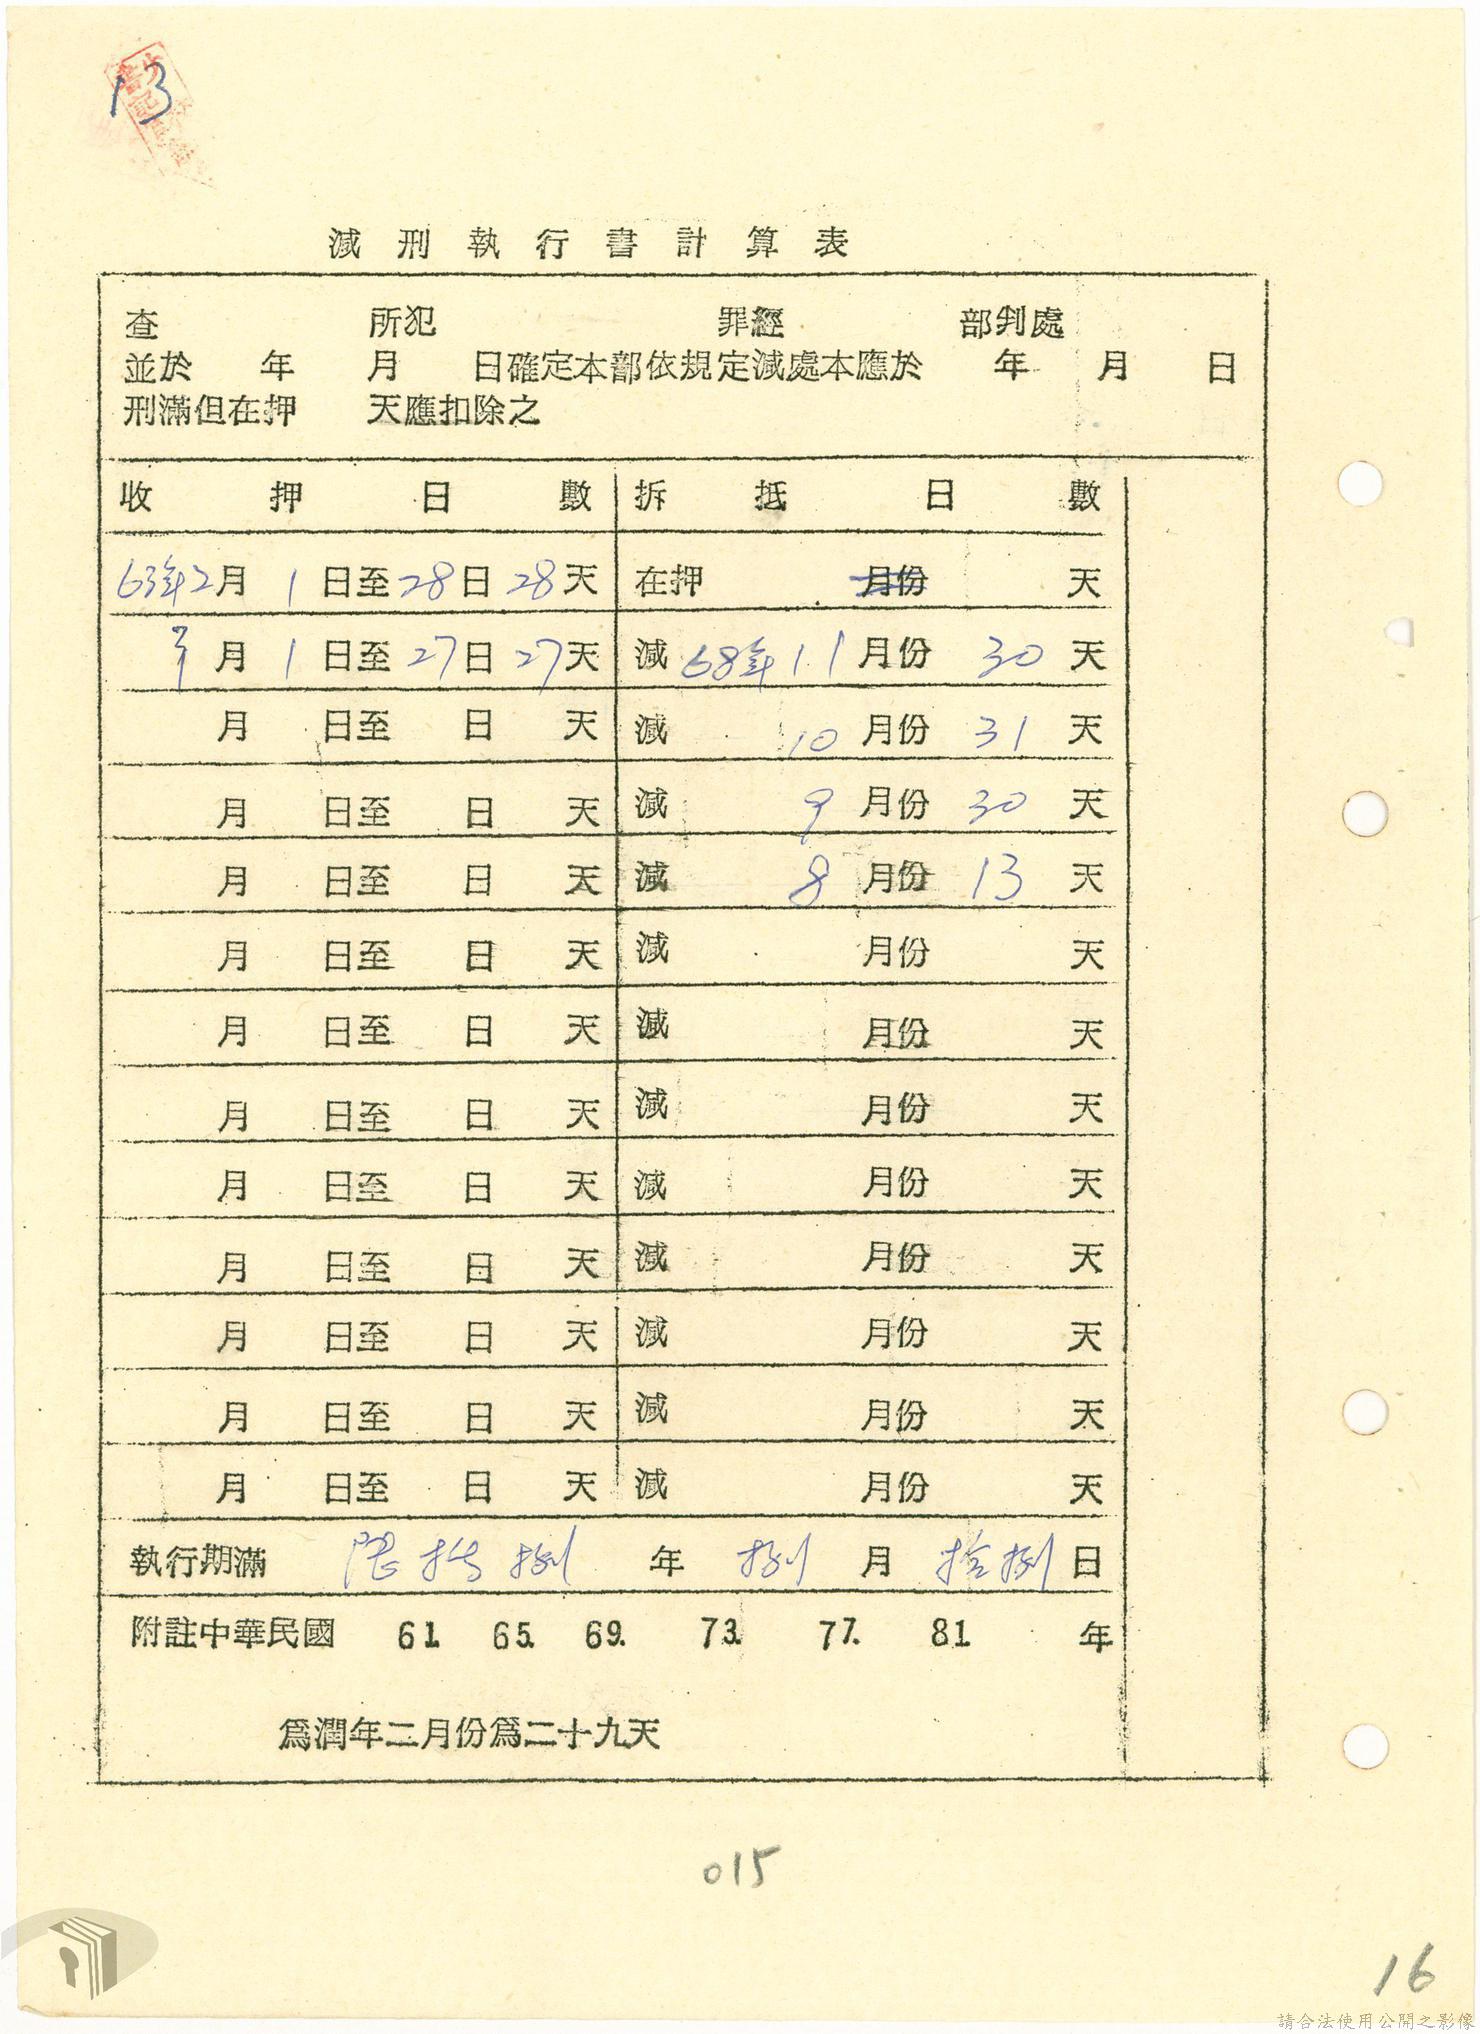 13
減刑執行書計算表
查 所犯 罪經 部判處
並於 年 月 日確定本部依規定減處本應於 年 月 日
刑滿但在押 天應扣除之
收押日數 拆抵日數
63年2月 1日至28日 28天 在押 月份 天
3月 1日至27日 27天 減 68年11月份 30天
月 日至 日 天 減 10月份 31天
月 日至 日 天 減 9月份 30天
月 日至 日 天 減 8月份 13天
月 日至 日 天 減 月份 天
月 日至 日 天 減 月份 天
月 日至 日 天 減 月份 天
月 日至 日 天 減 月份 天
月 日至 日 天 減 月份 天
月 日至 日 天 減 月份 天
月 日至 日 天 減 月份 天
月 日至 日 天 減 月份 天
執行期滿 捌年 捌月 拾捌日
附註中華民國 61. 65. 69. 73. 77. 81 年
為潤年二月份為二十九天
015
16
請合法使用公開之影像